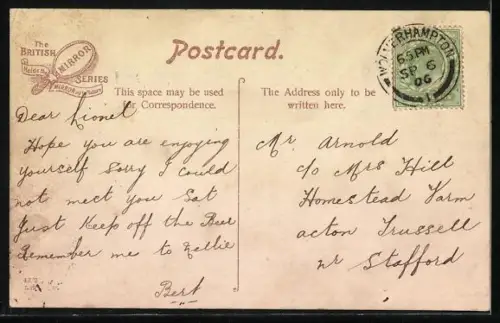 The
BRITISH
MIRROR
SERIES
Postcard.
This space may be used
for Correspondence.
The Address only to be
written here.
WOLVERHAMPTON
SP 6
06
1
Dear Lionel
Hope you are enjoying
yourself Sorry I could
not meet you Sat
Just Keep off the Beer
Remember me to Nellie
Bert
Mr Arnold
c/o Mrs Hill
Homestead Farm
acton Trussell
nr Stafford